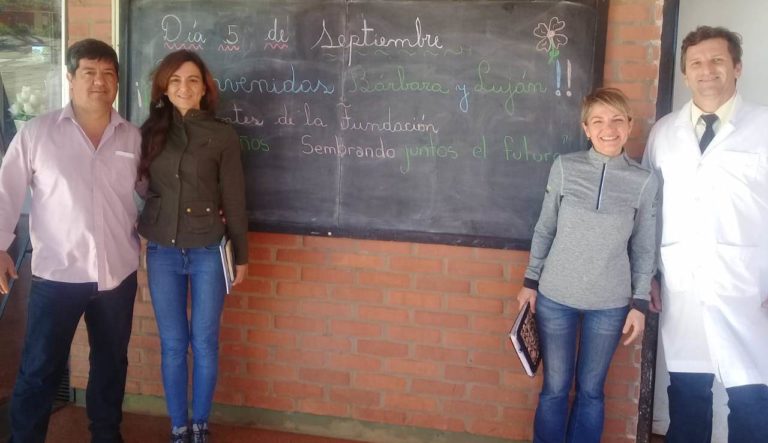 Día 5 de Septiembre
Bienvenidas Bárbara y Luján!!
de la Fundación
Sembrando juntos el futuro"